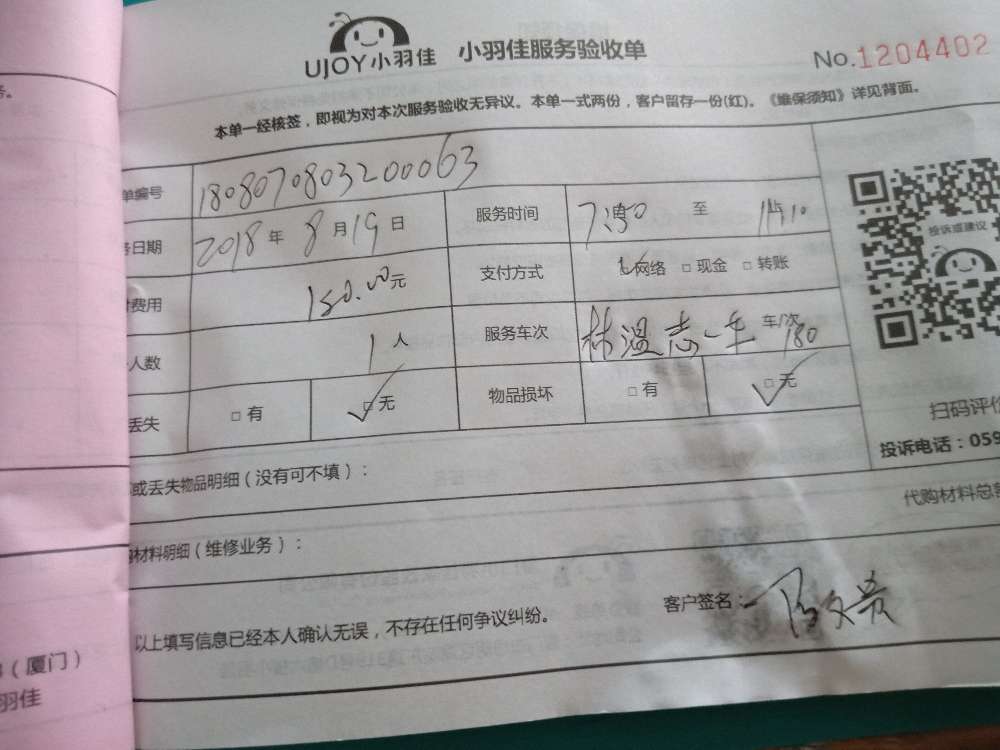 务。
UJOY小羽佳 小羽佳服务验收单
No.1204402
本单一经核签，即视为对本次服务验收无异议。本单一式两份，客户留存一份(红)。《维保须知》详见背面。
单编号 1808070803200063
日期 2018 年 8 月 19 日 服务时间 至
费用 150.00元 支付方式 网络 □ 现金 □ 转账
投诉或建议
人数 1 人 服务车次 林温志一车 车/次 180
丢失 □ 有 □ 无 物品损坏 □ 有 □ 无
扫码评价
投诉电话：059
或丢失物品明细（没有可不填）：
代购材料总
材料明细（维修业务）：
以上填写信息已经本人确认无误，不存在任何争议纠纷。
客户签名：
（厦门）
羽佳